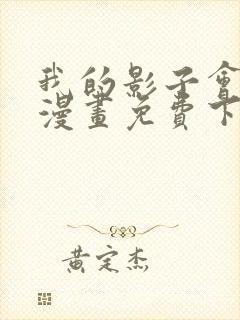 我的影子會
漫畫免費下
黃定杰